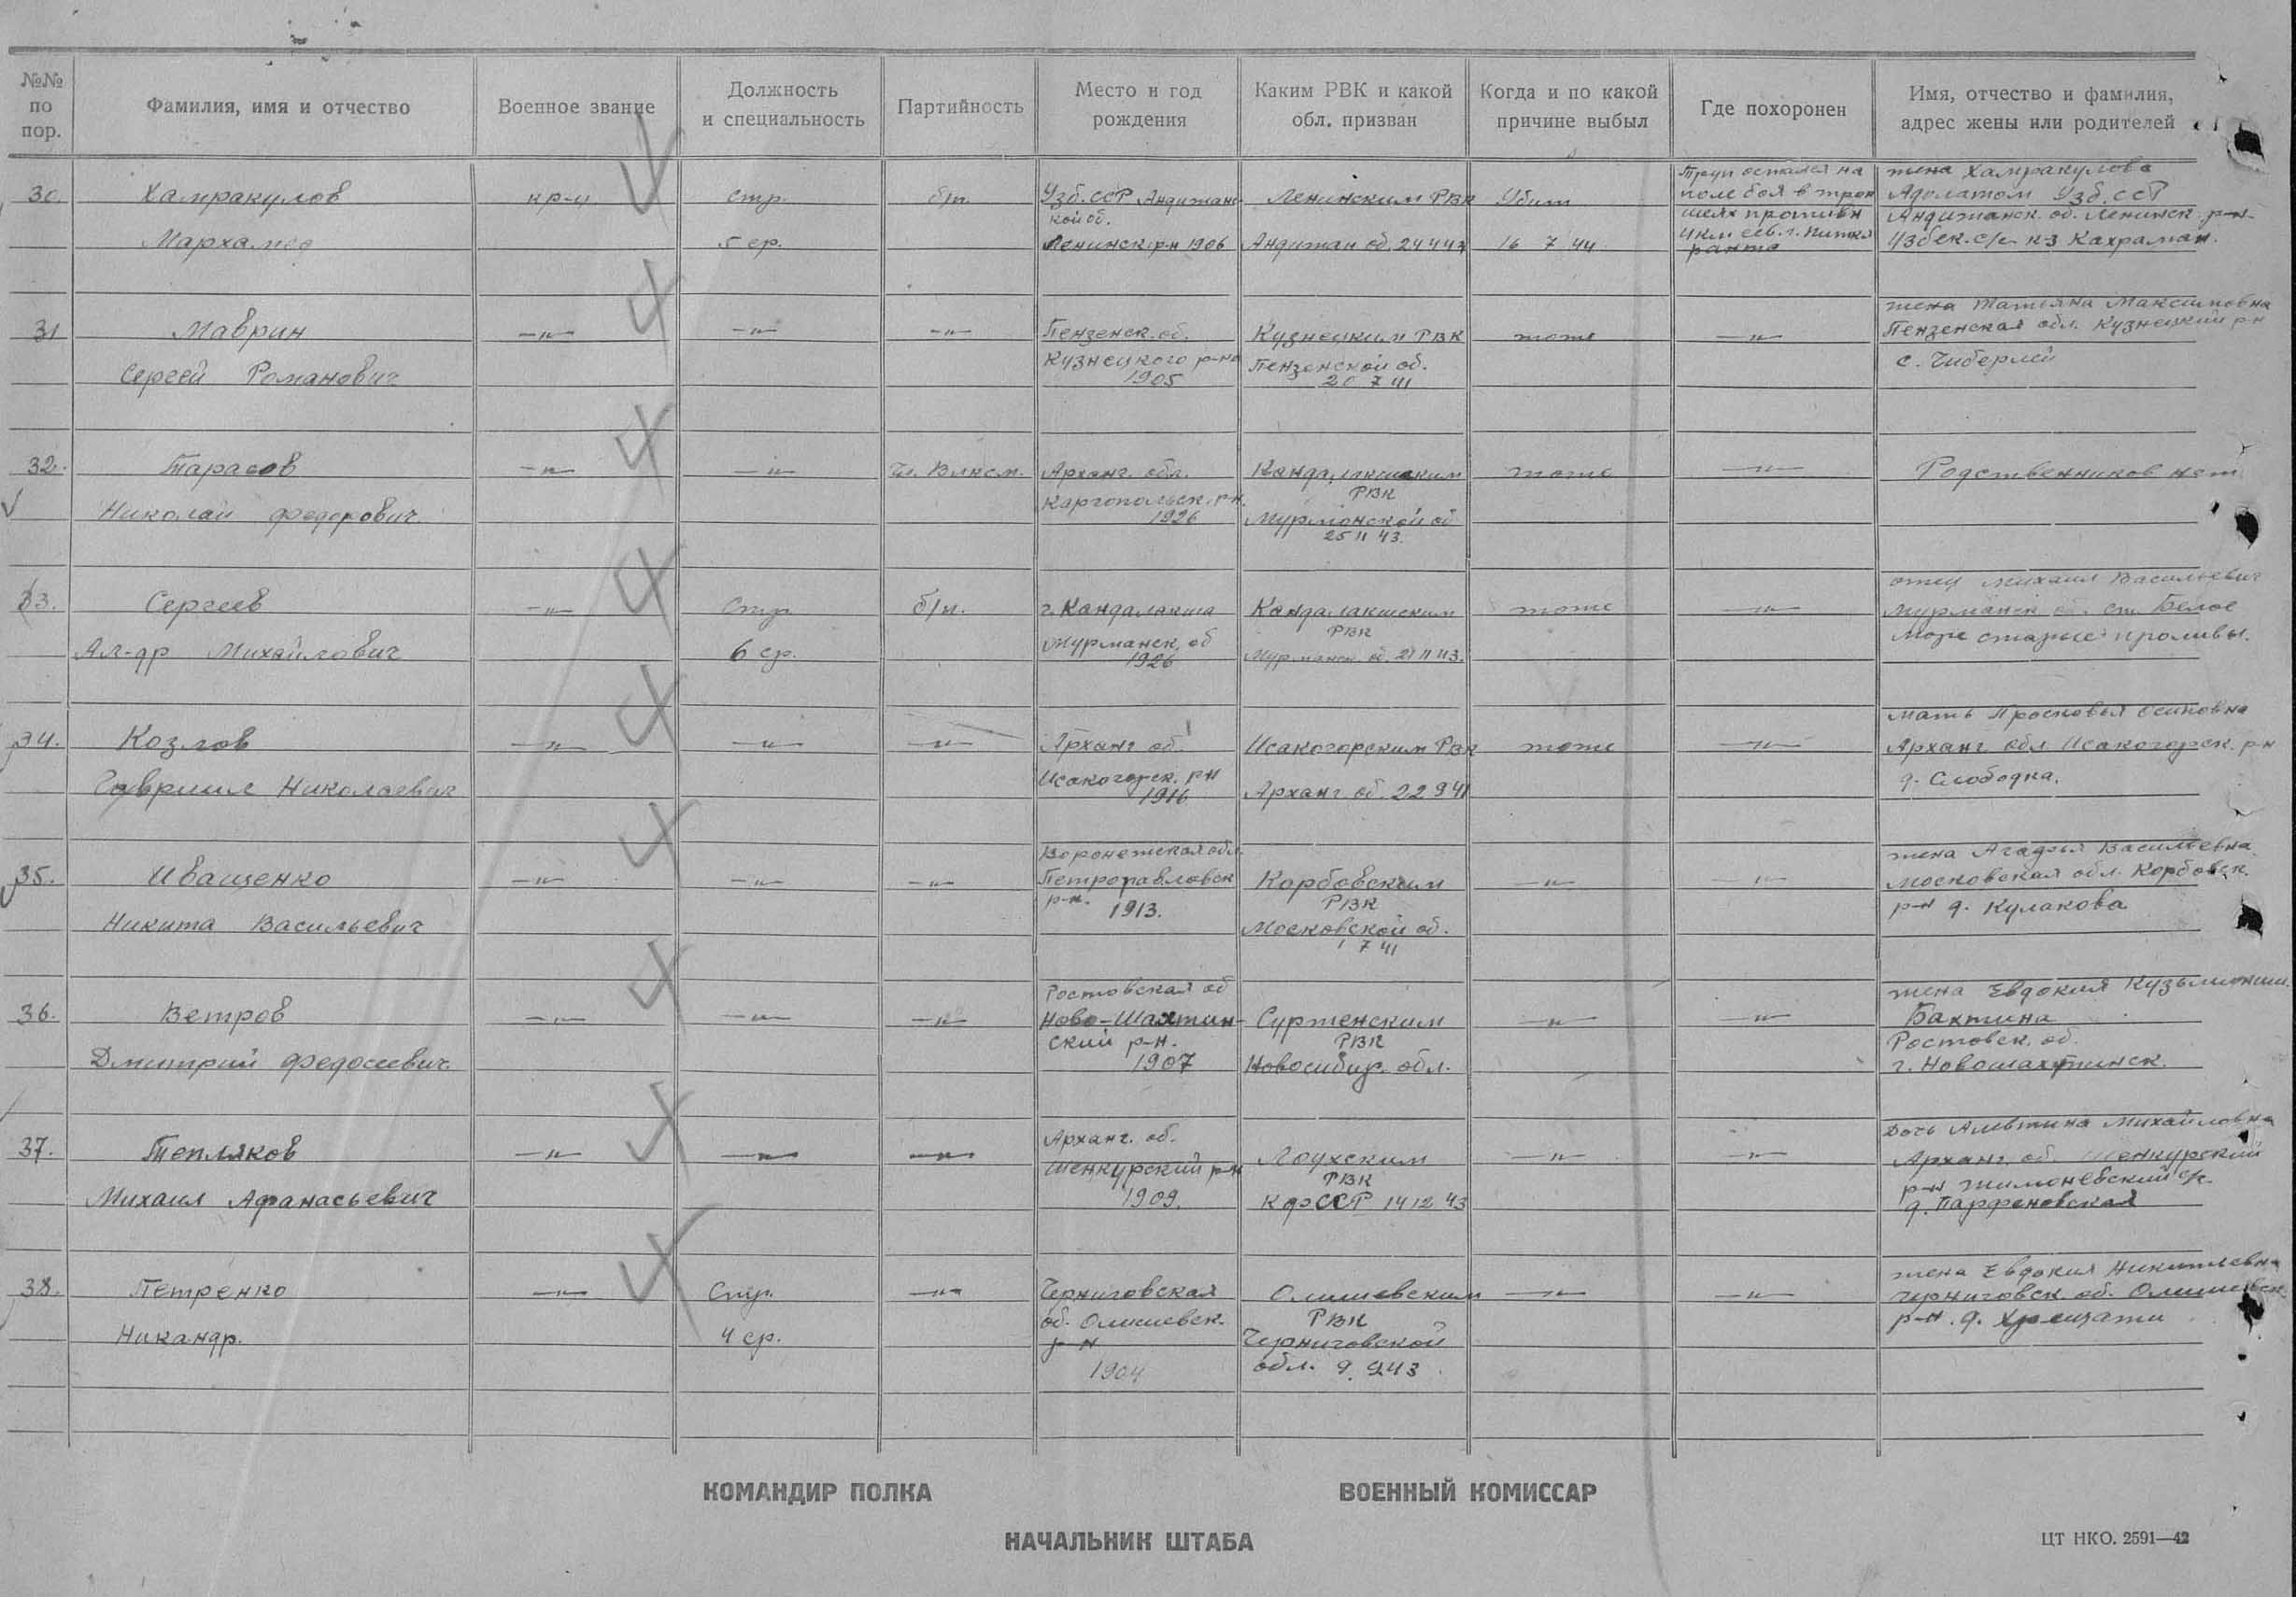 №№ по пор.
Фамилия, имя и отчество
Военное звание
Должность и специальность
Партийность
Место и год рождения
Каким РВК и какой обл. призван
Когда и по какой причине выбыл
Где похоронен
Имя, отчество и фамилия, адрес жены или родителей
30.
Хамракулов
кр-ц
стр.
5 ср.
б/п.
Узб. ССР Андижанс-
кой об.
Ленинск. р-н 1906
Ленинским РВК
Андижан об. 24
Убит
16 7 44
Труп остался на
поле боя в тран
шеях противн
4 км сев. г. Питкя
ранта
жена Хамракулова
Адолатом Узб. ССР
Андижанск. об. Ленинск. р-н
Узбек. с/с к-з Кахраман.
31
Маврин
Сергей Романович
—"—
—"—
—"—
Пензенск. об.
Кузнецкого р-на
1905
Кузнецким РВК
Пензенской об.
20 7 41
тоже
—"—
жена Татьяна Максимовна
Пензенская обл. Кузнецкий р-н
с. Чиберлей
32.
Тарасов
Николай Федорович.
—"—
—"—
Чл. Влксм.
Арханг. обл.
Каргопольск. р-н.
1926
Кандалакшским
РВК
Мурманской об
25 11 43.
тоже
—"—
Родственников нет
33.
Сергеев
Ал-др Михайлович
—"—
Стр.
6 ср.
б/п.
г. Кандалакша
Мурманск. об
1926
Кандалакшским
РВК
Мурманск. об. 21 11 43.
тоже
—"—
отец Михаил Васильевич
Мурманск ст. Белое
море старые проливы.
34.
Козлов
Гавриил Николаевич
—"—
—"—
—"—
Арханг об.
Исакогорск. р-н
1916
Исакогорским РВК
Арханг об. 22 9 41
тоже
—"—
мать Просковья Осиповна
Арханг обл Исакогорск. р-н
д. Слободка.
35.
Иващенко
Никита Васильевич
—"—
—"—
—"—
Воронежская обл.
Петропавловск
р-н.
1913.
Корбовским
РВК
Московской об.
1 7 41
—"—
—"—
жена Агафья Васильевна
Московская обл. Корбовск.
р-н д. Кулакова
36.
Ветров
Дмитрий Федосеевич.
—"—
—"—
—"—
Ростовская об
Ново-Шахтин-
ский р-н.
1907
Сурженским
РВК
Новосибир. обл.
—"—
—"—
жена Евдокия
Бахтина
Ростовск. об.
г. Новошахтинск.
37.
Тепляков
Михаил Афанасьевич
—"—
—"—
—"—
Арханг. об.
Шенкурский р-н
1909.
Лоухским
РВК
КФССР 14 12 43
—"—
—"—
Дочь Алевтина Михайловна
Арханг. об. Шенкурский
р-н с/с.
д. Парфеновская
38.
Петренко
Никандр.
—"—
Стр.
4 ср.
—"—
Черниговская
об. Олишевск.
р-н
1904
Олишевским
РВК
Черниговской
обл. 9. 9 43
—"—
—"—
жена Евдокия Никитьевна
Черниговск об. Олишевск.
р-н. д. Хрещати
КОМАНДИР ПОЛКА
ВОЕННЫЙ КОМИССАР
НАЧАЛЬНИК ШТАБА
ЦТ НКО. 2591—42